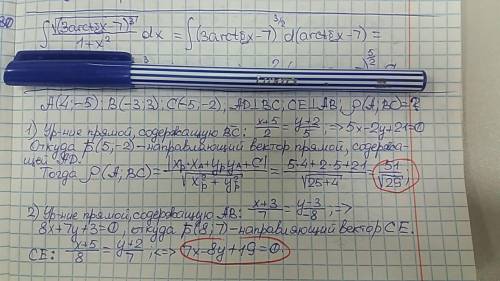 ∫ √(3arctgx-7)³ / 1+x² dx = ∫(3arctgx-7)^3/2 d(arctgx-7)=
A(4;-5); B(-3;3); C(-5;-2), AD⊥BC; CE⊥AB; ρ(A;BC)=?
1) Ур-ние прямой, содержащую BC: x+5/2 = y+2/5; => 5x-2y+21=0
Откуда p̄(5;-2)-направляющий вектор прямой, содержа-
щей AD.
Тогда ρ(A;BC)= |xₚ·xₐ+yₚyₐ+C| / √(xₚ²+yₚ²) = 5·4+2·5+21 / √(25+4) = 51 / √29;
2) Ур-ние прямой, содержащую AB: x+3/7 = y-3/-8; =>
8x+7y+3=0, откуда p̄(8;7)-направляющий вектор CE.
CE: x+5/8 = y+2/7; <=> 7x-8y+19=0.